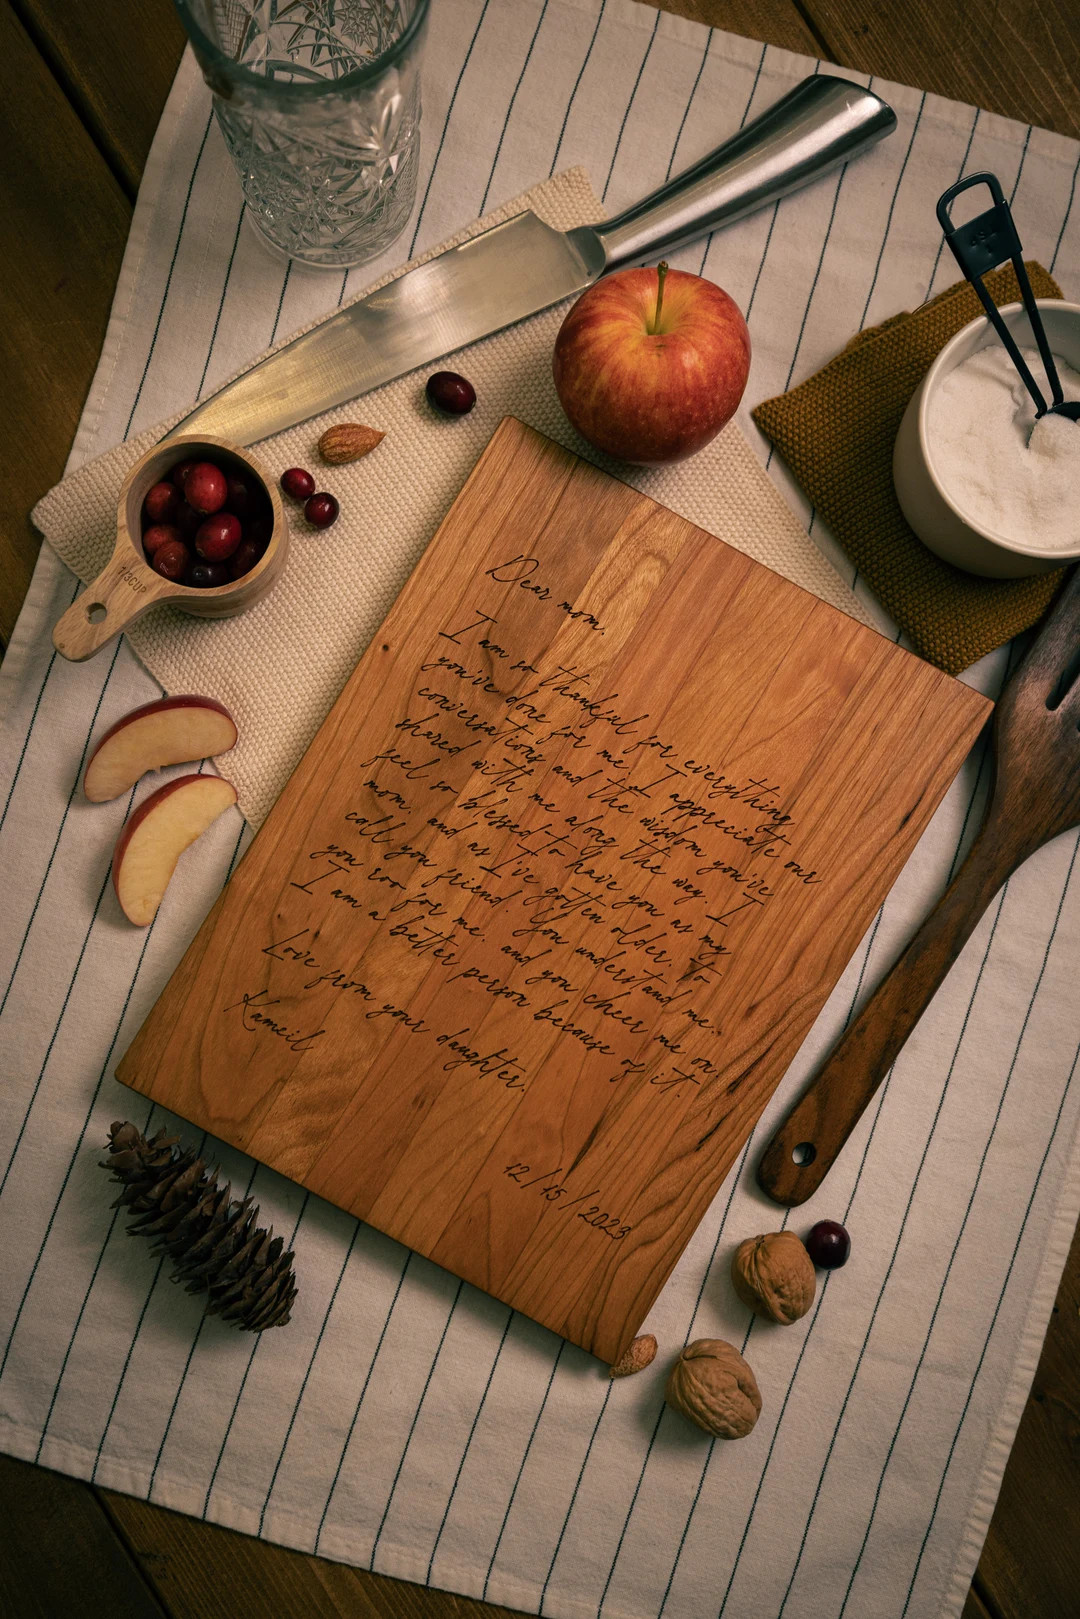 Dear mom.
I am so thankful for everything
you've done for me. I appreciate our
conversations and the wisdom you've
shared with me along the way. I
feel so blessed to have you as my
mom. and as I've gotten older. to
call you friend. You understand me..
you roo for me. and you cheer me on.
I am a better person because of it.
Love from your daughter.
Kameil
12/15/2023
1/3CUP